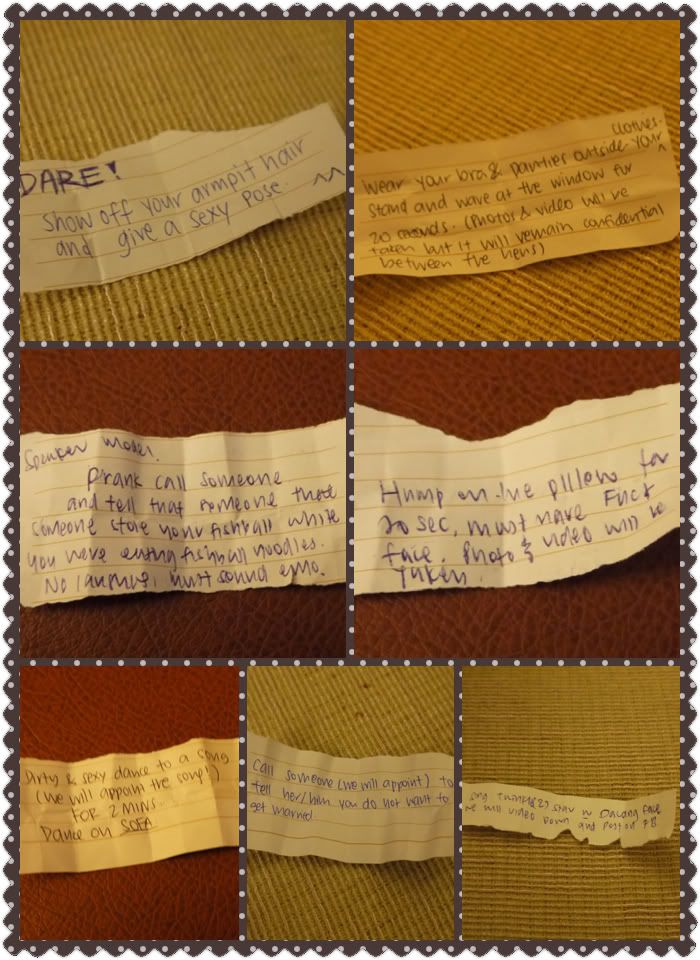 DARE!
Show off your armpit hair
and give a sexy pose. ^^
clothes.
Wear your bra & panties outside your ^
Stand and wave at the window for
20 seconds. (Photos & video will be
taken but it will remain confidential
between the hens)
Speaker mode.
Prank call someone
and tell that someone that
someone stole your fishball while
you were eating fishball noodles.
No laughing, must sound emo.
Hump on the pillow for
20 sec, must have Fuck
face. Photo & video will be
taken.
Dirty & sexy dance to a song
(we will appoint the song!)
FOR 2 MINS.
Dance on SOFA.
Call someone (we will appoint) to
tell her/him you do not want to
get married.
Sing Twinkle(2) star in face
we will video down and post on FB